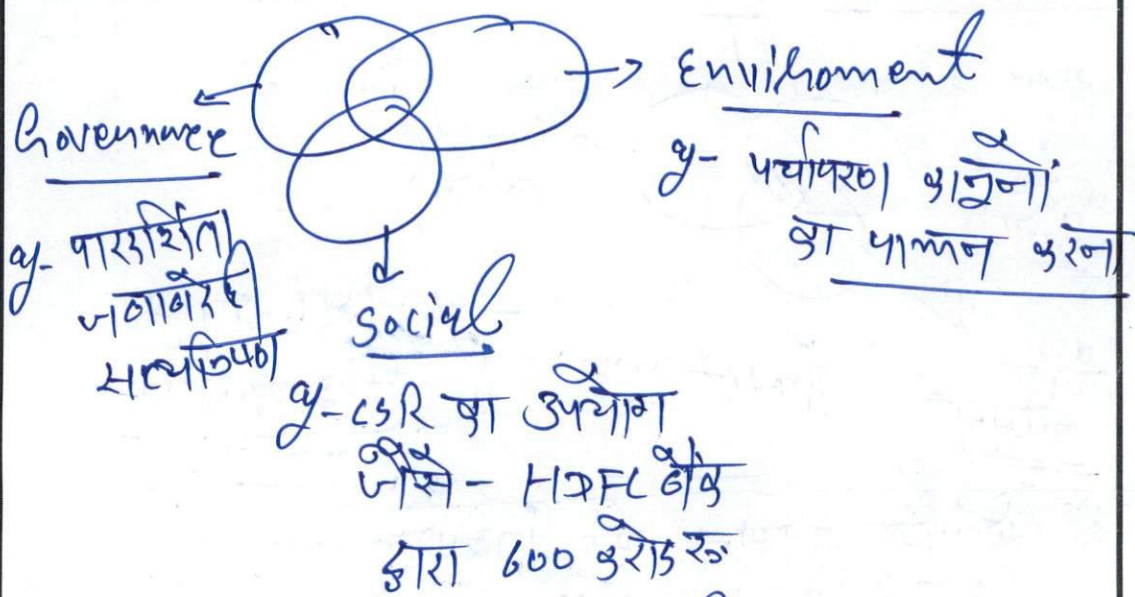 Governance
eg- पारदर्शिता
जवाबदेही
सत्यनिष्ठा
Enviroment
eg- पर्यावरण कानूनों
का पालन करना
Social
eg- CSR का उपयोग
जैसे - HDFC बैंक
द्वारा 600 करोड़ रू